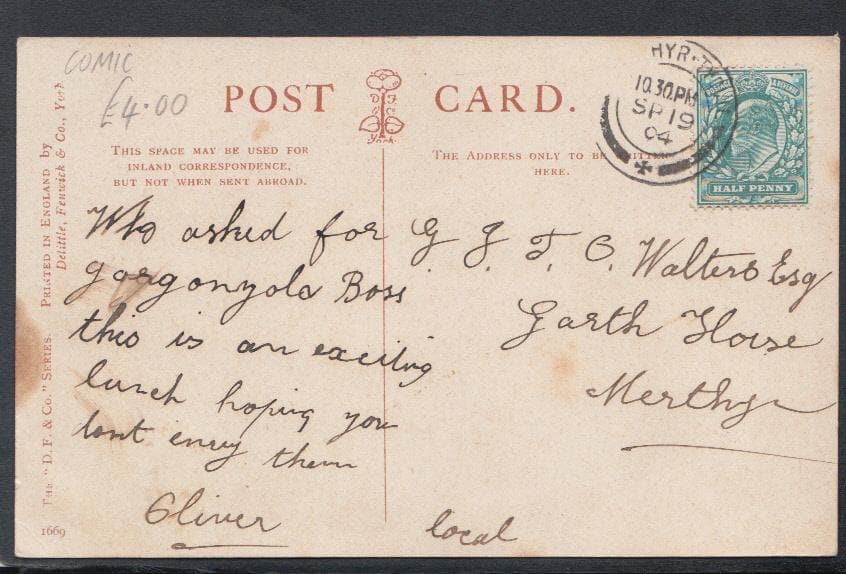 COMIC
£4.00
POST CARD.
THIS SPACE MAY BE USED FOR
INLAND CORRESPONDENCE,
BUT NOT WHEN SENT ABROAD.
York.
THE ADDRESS ONLY TO BE
HERE.
HYR
10.30PM
SP 19
04
POSTAGE REVENUE
HALF PENNY
PRINTED IN ENGLAND by
Delittle, Fenwick & Co., York
THE "D. F. & Co." SERIES.
1669
Who asked for
gorgonzola Boss
this is an exciting
lunch hoping you
dont envy them
Oliver
G. J. T. C. Walters Esq
Garth House
Merthyr
local